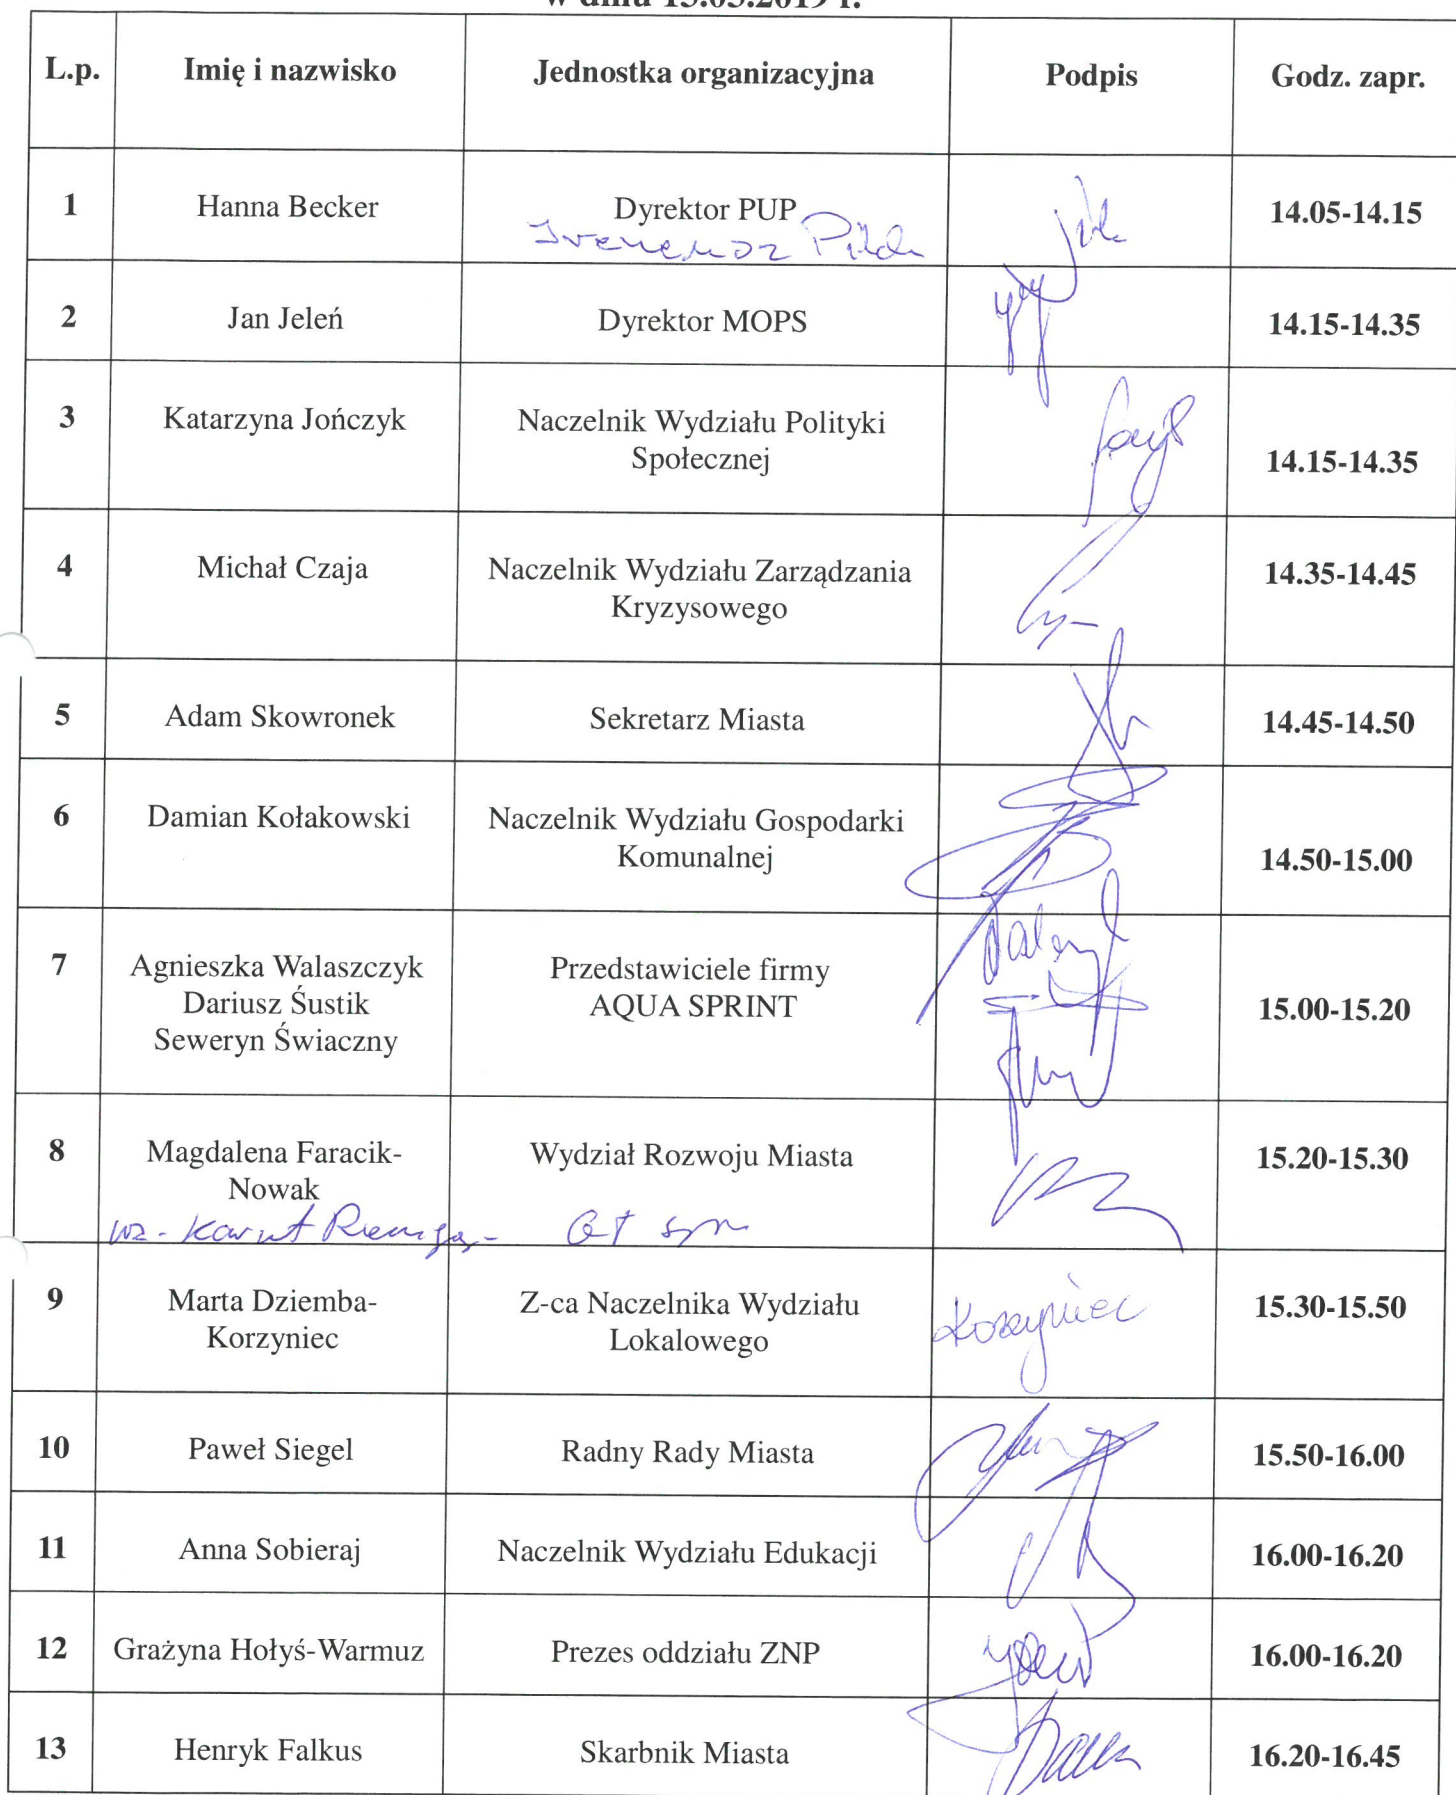 w dniu 15.05.2019 r.
L.p. Imię i nazwisko Jednostka organizacyjna Podpis Godz. zapr.
1 Hanna Becker Dyrektor PUP 14.05-14.15
Ireneusz Pilch
2 Jan Jeleń Dyrektor MOPS 14.15-14.35
3 Katarzyna Jończyk Naczelnik Wydziału Polityki
Społecznej 14.15-14.35
4 Michał Czaja Naczelnik Wydziału Zarządzania 14.35-14.45
Kryzysowego
5 Adam Skowronek Sekretarz Miasta 14.45-14.50
6 Damian Kołakowski Naczelnik Wydziału Gospodarki
Komunalnej 14.50-15.00
7 Agnieszka Walaszczyk Przedstawiciele firmy
Dariusz Śustik AQUA SPRINT 15.00-15.20
Seweryn Świaczny
8 Magdalena Faracik- Wydział Rozwoju Miasta 15.20-15.30
Nowak
wz.
9 Marta Dziemba- Z-ca Naczelnika Wydziału Korzyniec 15.30-15.50
Korzyniec Lokalowego
10 Paweł Siegel Radny Rady Miasta 15.50-16.00
11 Anna Sobieraj Naczelnik Wydziału Edukacji 16.00-16.20
12 Grażyna Hołyś-Warmuz Prezes oddziału ZNP 16.00-16.20
13 Henryk Falkus Skarbnik Miasta 16.20-16.45